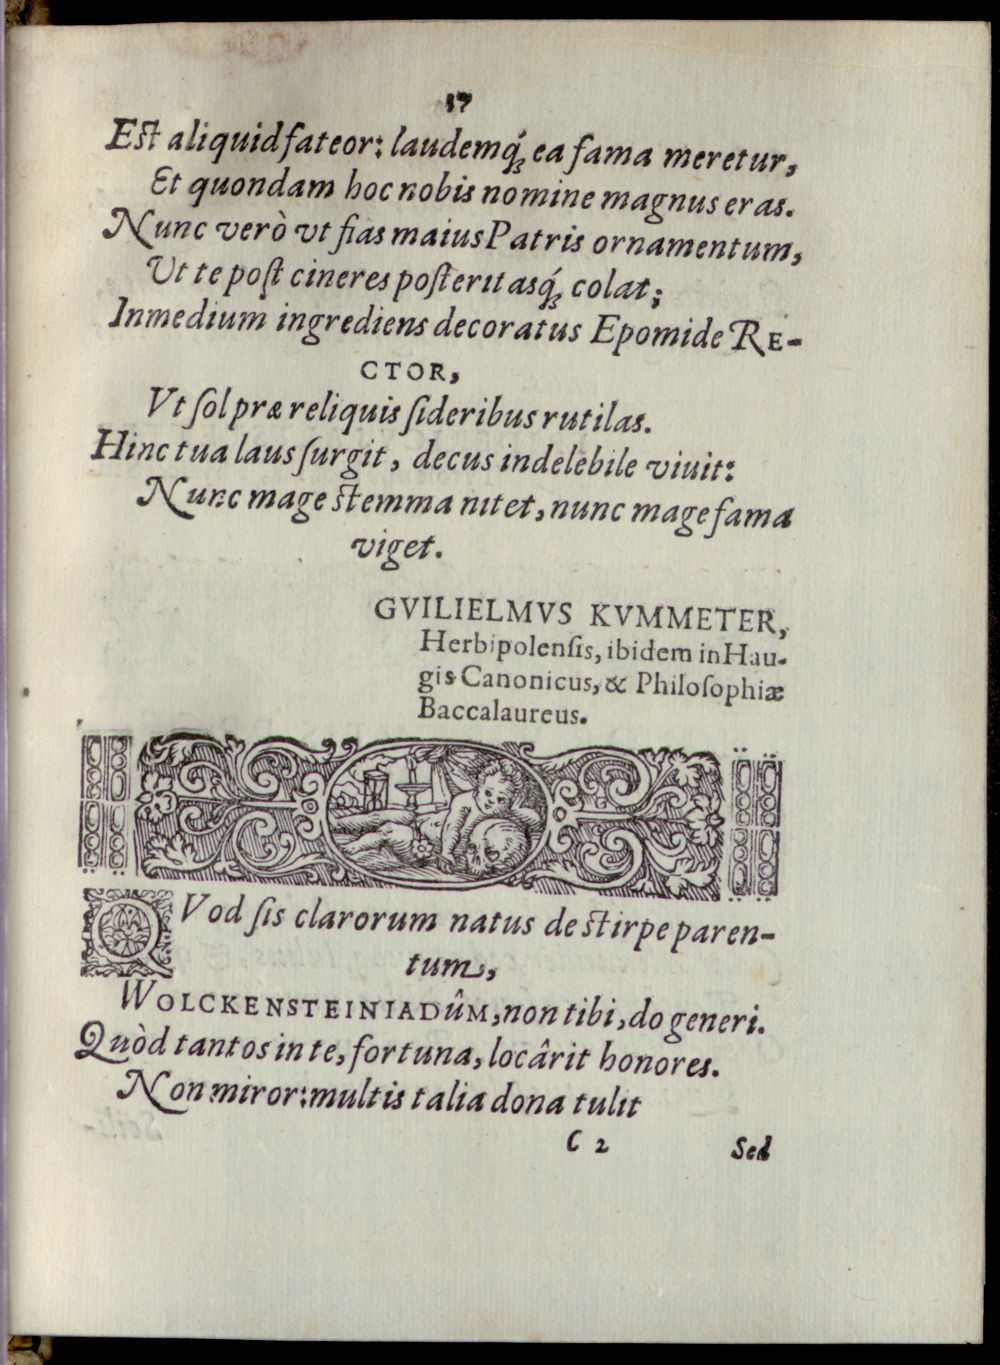 17
Est aliquid fateor: laudemq́; ea fama meretur,
Et quondam hoc nobis nomine magnus eras.
Nunc verò vt fias maius Patris ornamentum,
Ut te post cineres posteritasq́; colat;
In medium ingrediens decoratus Epomide RE-
CTOR,
Vt ſol præ reliquis ſideribus rutilas.
Hinc tua laus ſurgit, decus indelebile viuit:
Nunc mage stemma nitet, nunc mage fama
viget.
GVILIELMVS KVMMETER,
Herbipolenſis, ibidem in Hau-
gis Canonicus, & Philoſophiæ
Baccalaureus.
QVod ſis clarorum natus de stirpe paren-
tum,
WOLCKENSTEINIADÛM, non tibi, do generi.
Quòd tantos in te, fortuna, locârit honores.
Non miror: multis talia dona tulit
C 2
Sed